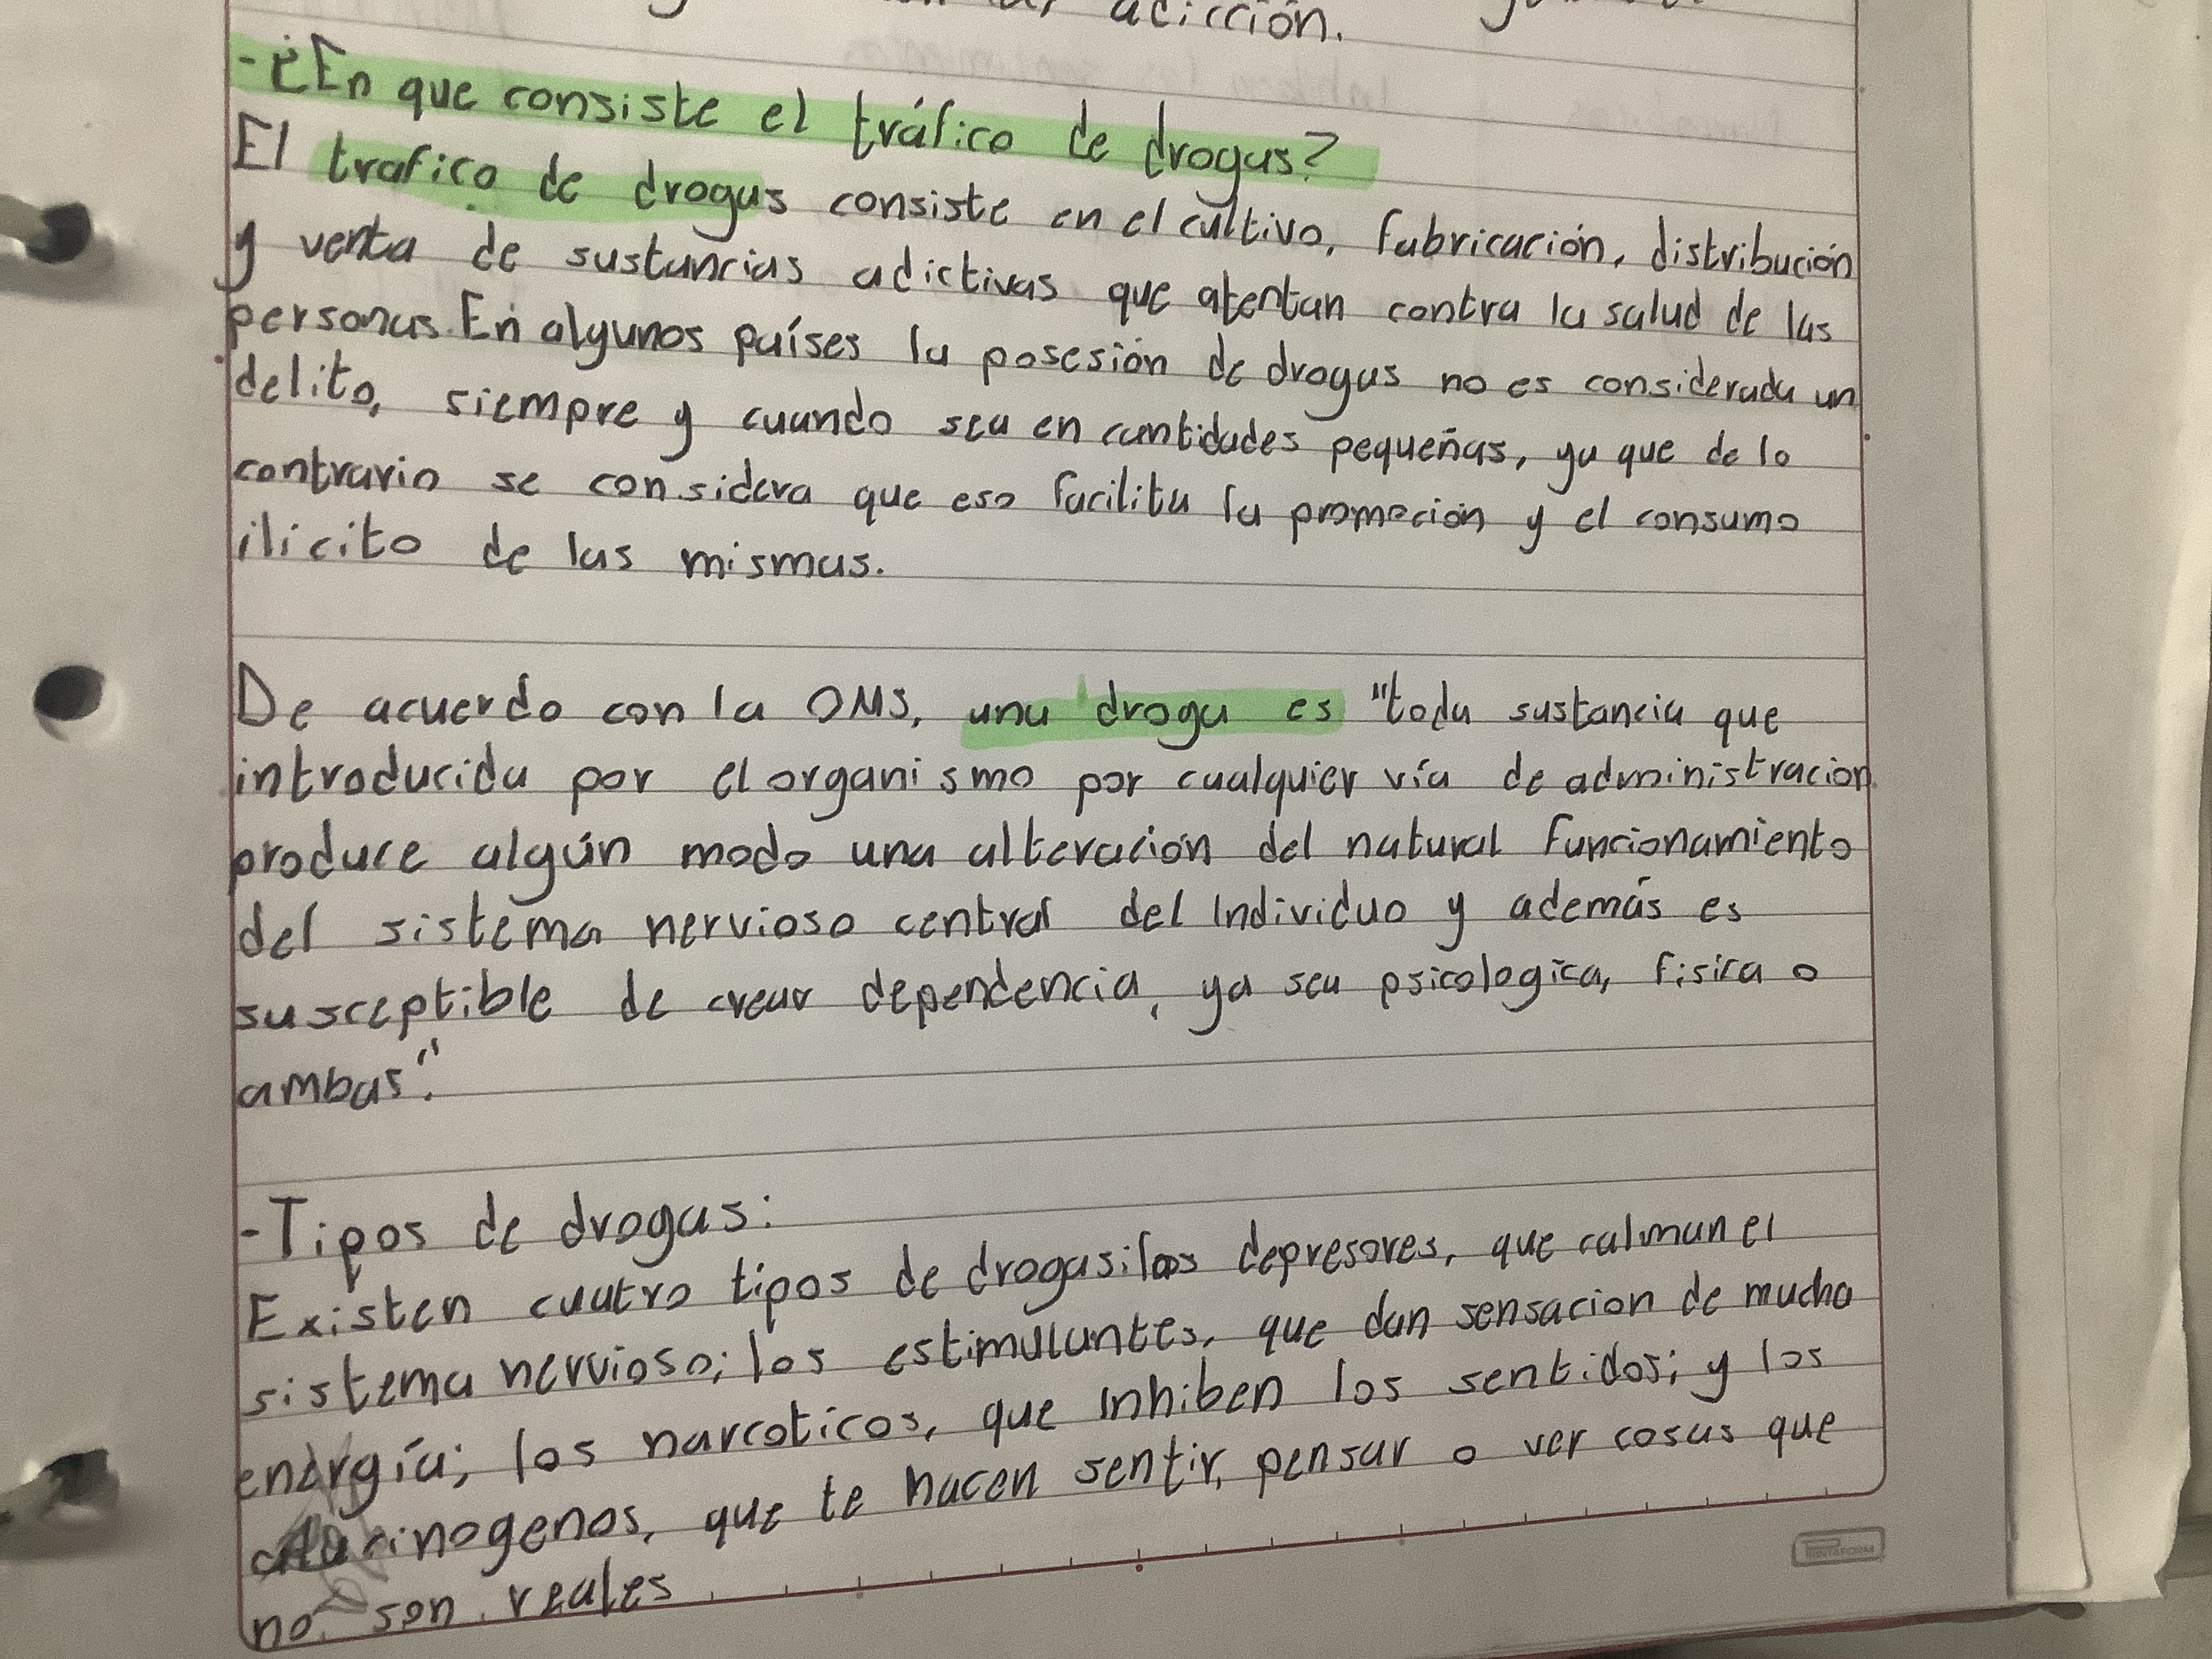 adicción.
-¿En que consiste el tráfico de drogas?
El trafico de drogas consiste en el cultivo, fabricación, distribución
y venta de sustancias adictivas que atentan contra la salud de las
personas. En algunos países la posesión de drogas no es considerada un
delito, siempre y cuando sea en cantidades pequeñas, ya que de lo
contrario se considera que eso facilita la promoción y el consumo
ilicito de las mismas.
De acuerdo con la OMS, una droga es "toda sustancia que
introducida por el organismo por cualquier vía de administracion
produce algún modo una alteración del natural funcionamiento
del sistema nervioso central del individuo y además es
susceptible de crear dependencia, ya sea psicologica, fisica o
ambas".
-Tipos de drogas:
Existen cuatro tipos de drogas: los depresores, que calman el
sistema nervioso; los estimulantes, que dan sensacion de mucha
energía; los narcoticos, que inhiben los sentidos; y los
alucinogenos, que te hacen sentir, pensar o ver cosas que
no son reales
PENTAFORM